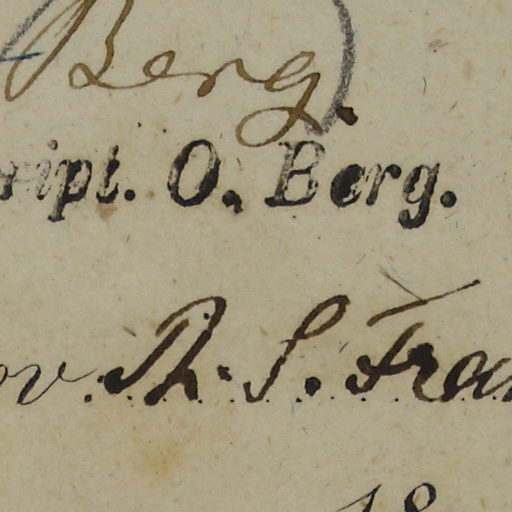 Berg.
ript. O. Berg.
ov. Th. S. Fran
18